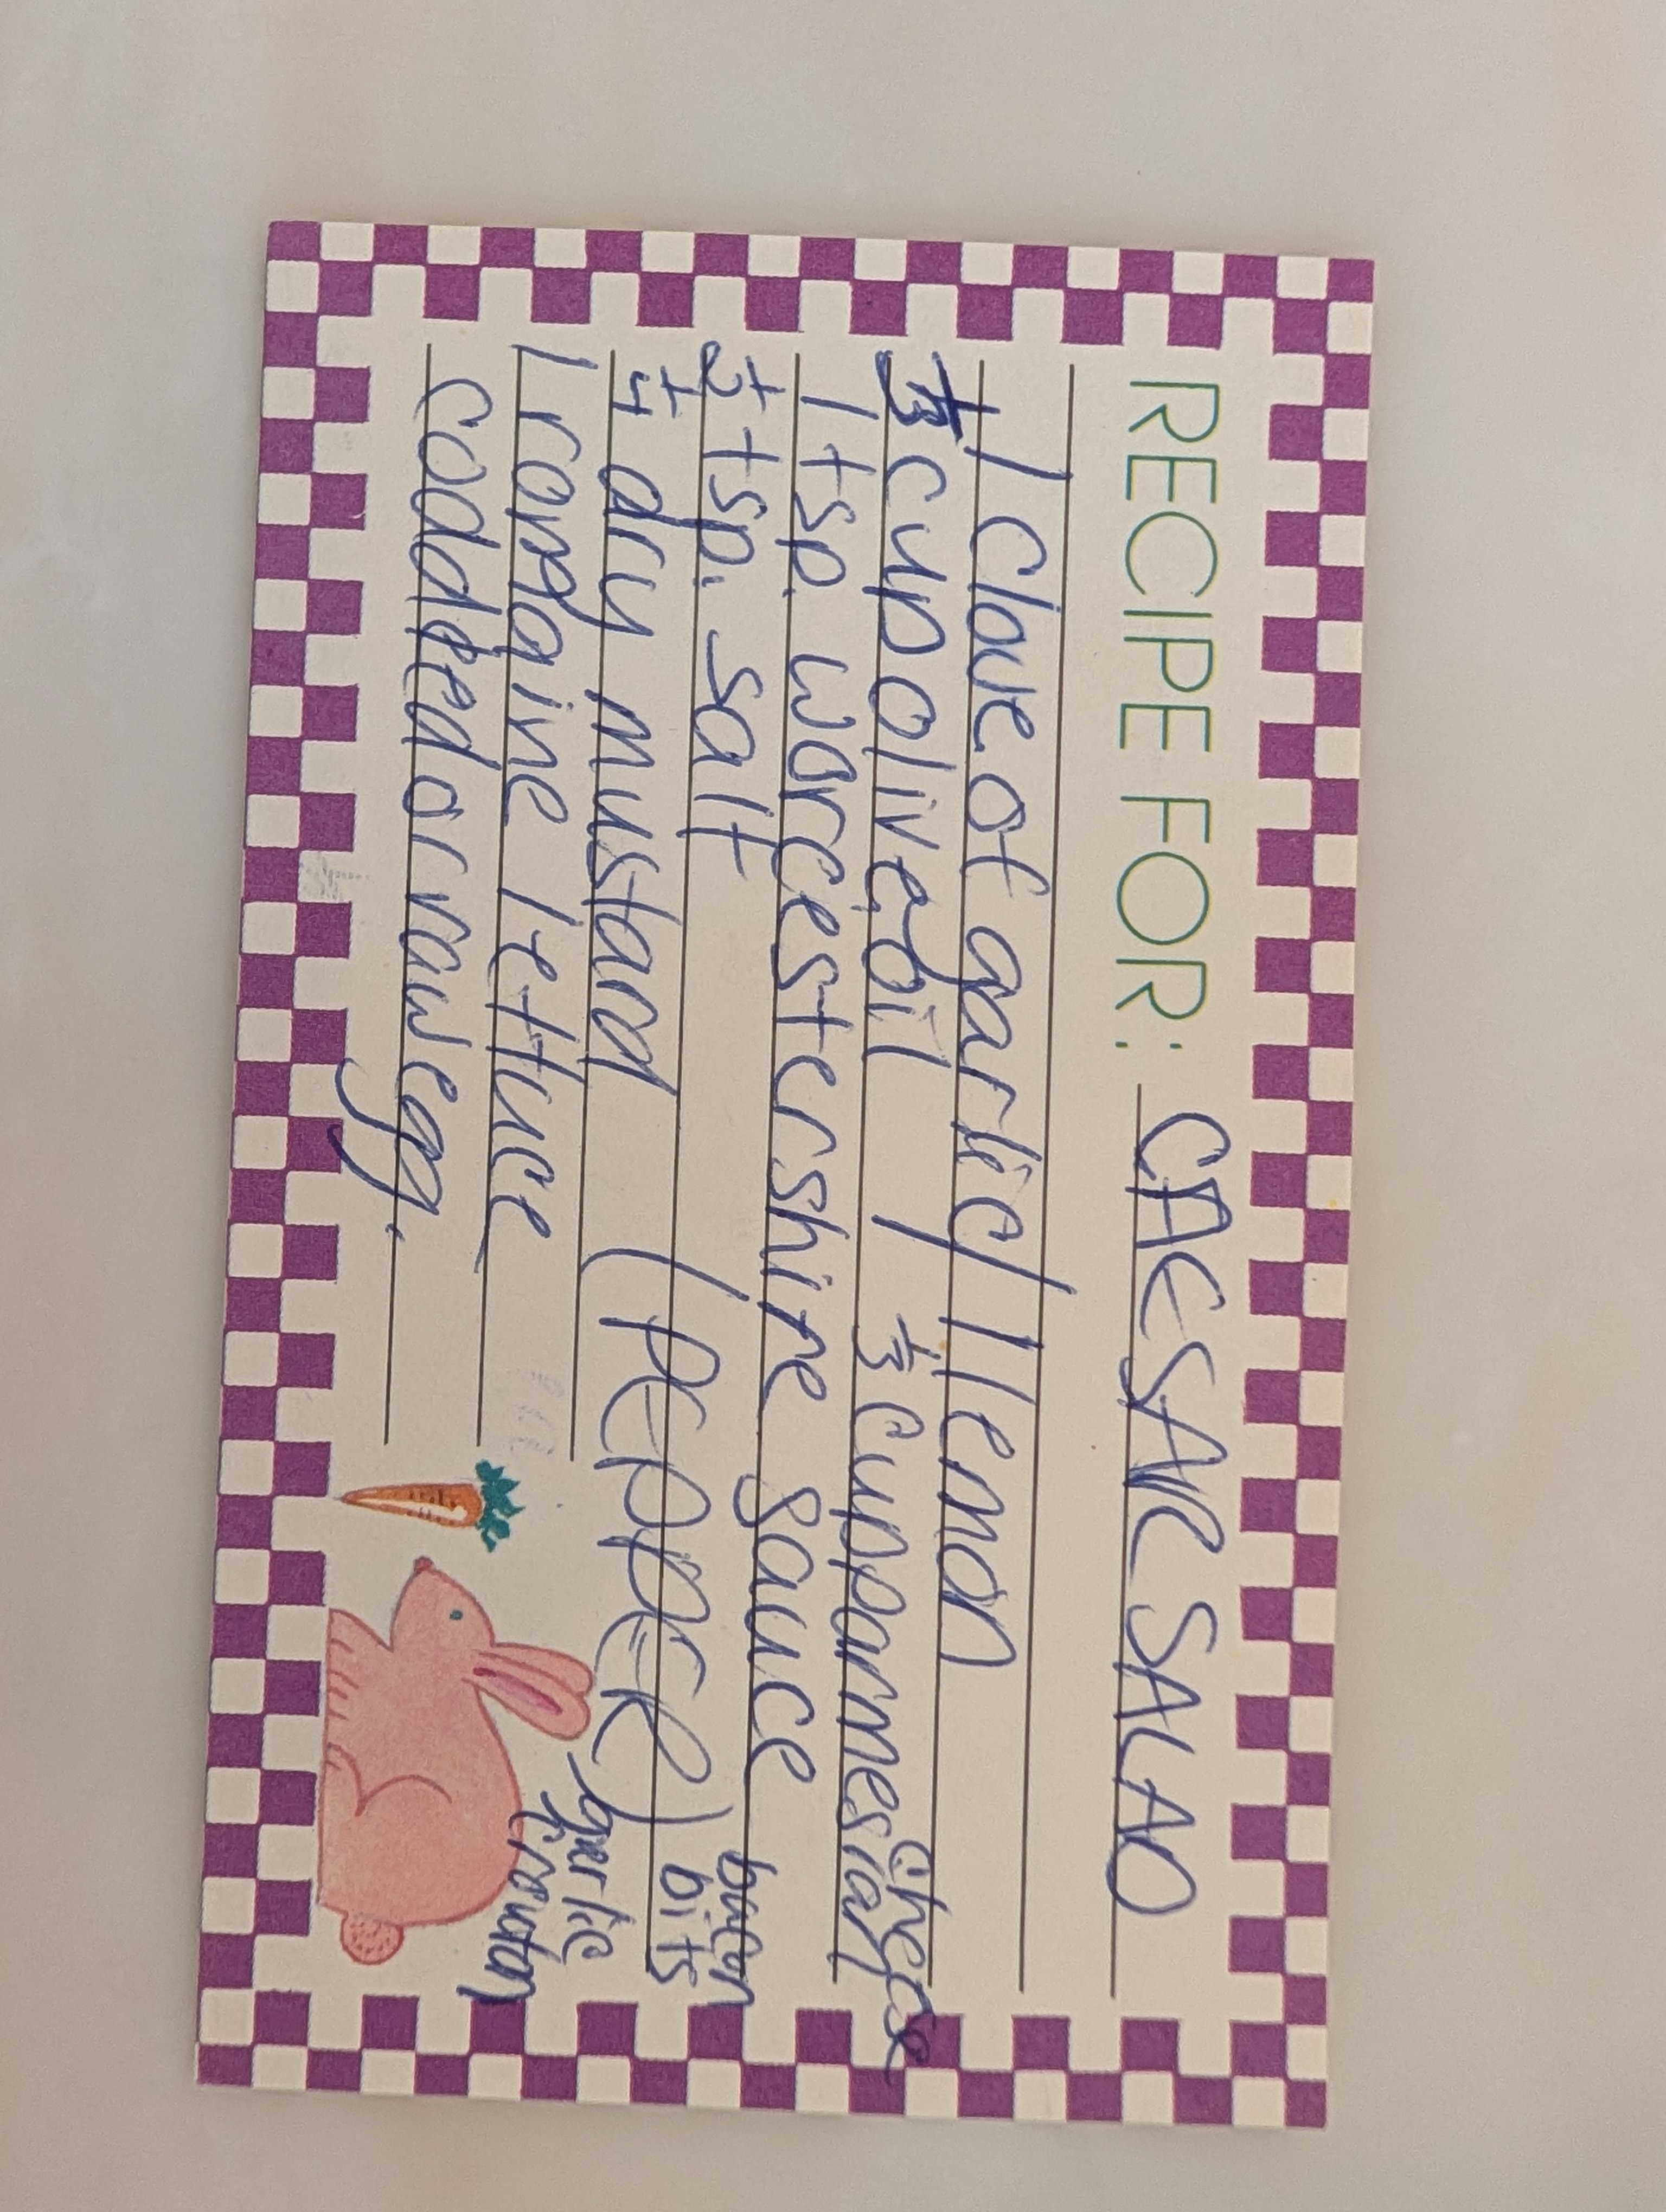 RECIPE FOR: CAESAR SALAD
1 clove of garlic / 1 lemon
1/3 cup olive oil / 1/3 cup parmesian cheese
1 tsp. worcestershire sauce
1/2 tsp. salt bacon bits
1/4 dry mustard (PEPPER)
1 romaine lettuce garlic crouton
coddled or raw egg.